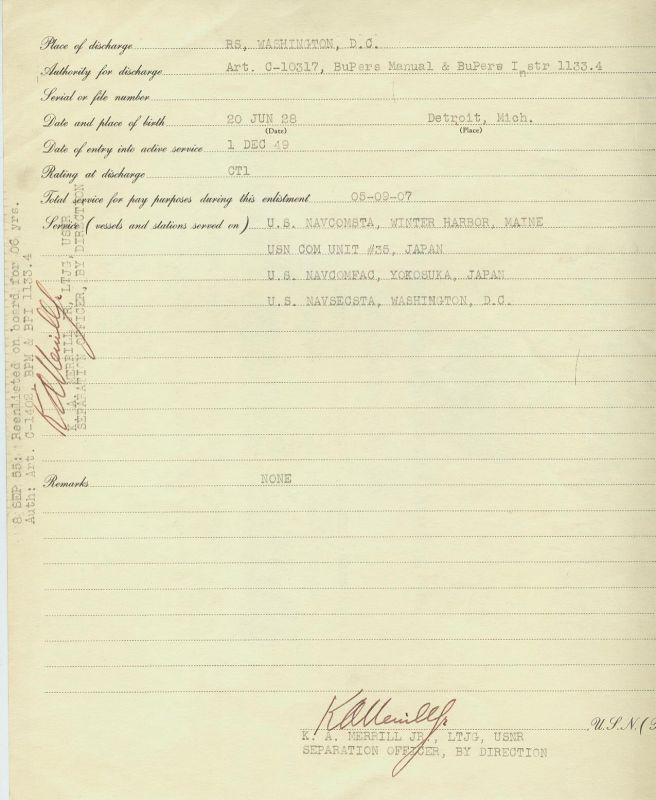 Place of discharge RS, WASHINGTON, D.C.
Authority for discharge Art. C-10317, BuPers Manual & BuPers Instr 1133.4
Serial or file number
Date and place of birth 20 JUN 28 Detroit, Mich.
(Date) (Place)
Date of entry into active service 1 DEC 49
Rating at discharge CT1
Total service for pay purposes during this enlistment 05-09-07
Service (vessels and stations served on) U.S. NAVCOMSTA, WINTER HARBOR, MAINE
USN COM UNIT #35, JAPAN
U.S. NAVCOMFAC, YOKOSUKA, JAPAN
U.S. NAVSECSTA, WASHINGTON, D.C.
Remarks NONE
K A Merrill Jr.
, U.S.N. (
K. A. MERRILL JR., LTJG, USNR
SEPARATION OFFICER, BY DIRECTION
8 SEP 55: Reenlisted on board for 06 yrs.
Auth: Art. C-1402, BPM & BPI 1133.4
K A Merrill Jr.
K. A. MERRILL JR, LTJG, USNR
SEPARATION OFFICER, BY DIRECTION